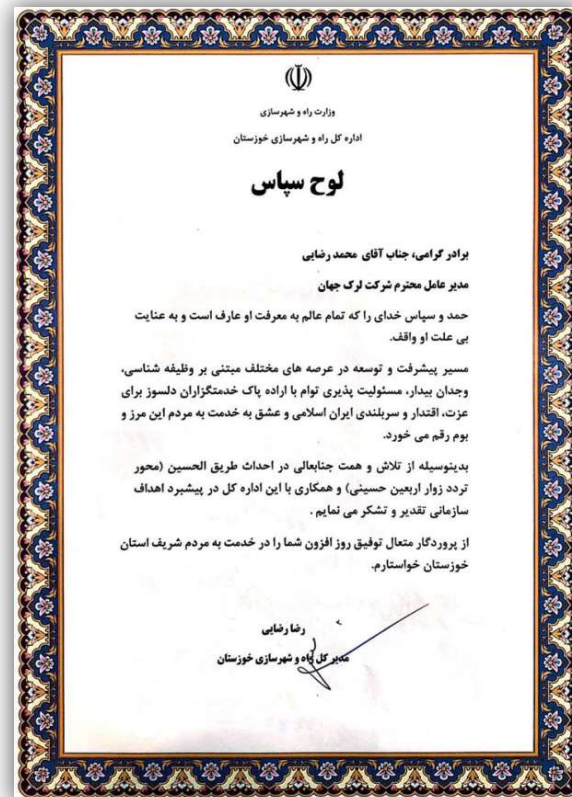 وزارت راه و شهرسازی
اداره کل راه و شهرسازی خوزستان
لوح سپاس
برادر گرامی، جناب آقای محمد رضایی
مدیر عامل محترم شرکت لرک جهان
حمد و سپاس خدای را که تمام عالم به معرفت او عارف است و به عنایت
بی علت او واقف.
مسیر پیشرفت و توسعه در عرصه های مختلف مبتنی بر وظیفه شناسی،
وجدان بیدار، مسئولیت پذیری توام با اراده پاک خدمتگزاران دلسوز برای
عزت، اقتدار و سربلندی ایران اسلامی و عشق به خدمت به مردم این مرز و
بوم رقم می خورد.
بدینوسیله از تلاش و همت جنابعالی در احداث طریق الحسین (محور
تردد زوار اربعین حسینی) و همکاری با این اداره کل در پیشبرد اهداف
سازمانی تقدیر و تشکر می نمایم .
از پروردگار متعال توفیق روز افزون شما را در خدمت به مردم شریف استان
خوزستان خواستارم.
رضا رضایی
مدیر کل راه و شهرسازی خوزستان